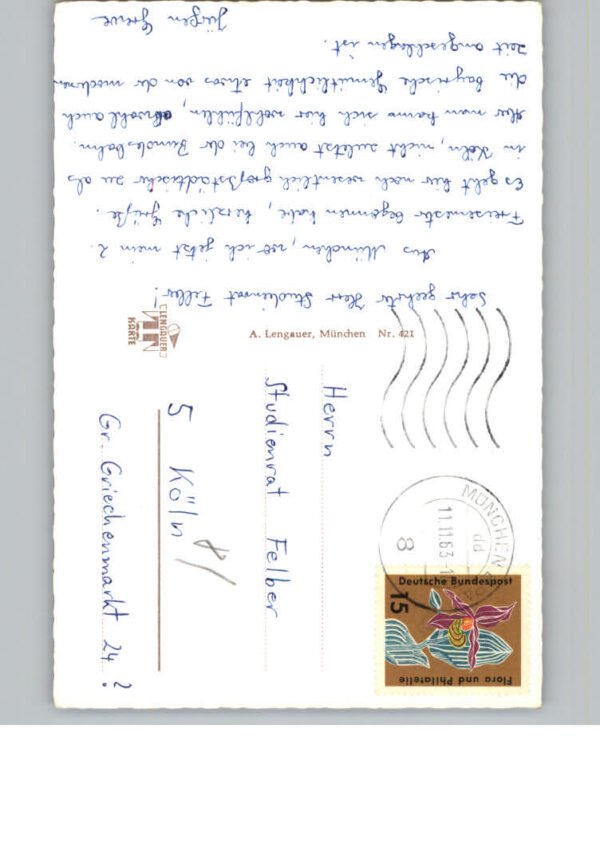 Sehr geehrter Herr Studienrat Felber!
Aus München, wo ich jetzt mein 2.
Freisemester begonnen habe, herzliche Grüße.
Es geht hier noch wesentlich großstädtischer zu als
in Köln, nicht zuletzt auch bei der Bundesbahn.
Aber man kann sich hier wohlfühlen, obwohl auch
die bayrische Gemütlichkeit etwas von der modernen
Zeit angeschlagen ist.
Jürgen Greve
LENGAUER
KARTE
A. Lengauer, München Nr. 421
Herrn
Studienrat Felber
5 Köln
Gr. Griechenmarkt 24 ?
MÜNCHEN
11.11.63
dd
8
Deutsche Bundespost
15
Flora und Philatelie